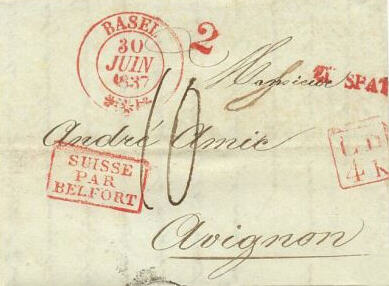 BASEL
30
JUIN
1837
2
Monsieur
ZU SPAT
André Amic
SUISSE
PAR
BELFORT
16
4 K
Avignon